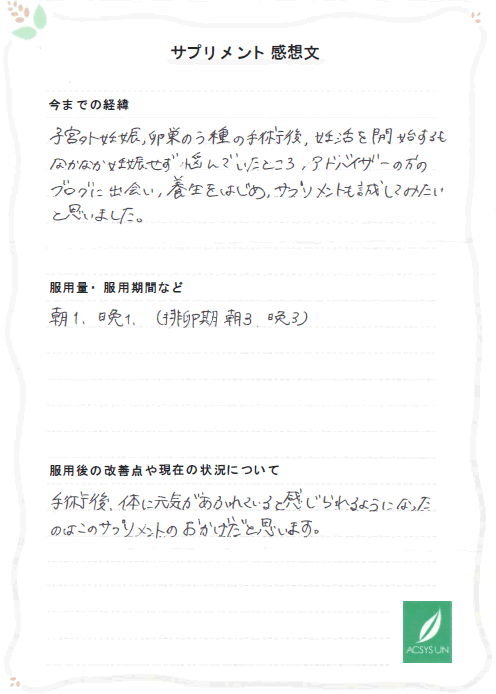 サプリメント 感想文
今までの経緯
子宮外妊娠,卵巣のう種の手術後,妊活を開始するも
なかなか妊娠せず悩んでいたところ,アドバイザーの方の
ブログに出会い,養生をはじめ,サプリメントも試してみたい
と思いました。
服用量・服用期間など
朝1、晩1、(排卵期 朝3、晩3)
服用後の改善点や現在の状況について
手術後、体に元気があふれていると感じられるようになった
のはこのサプリメントのおかげだと思います。
ACSYSUN